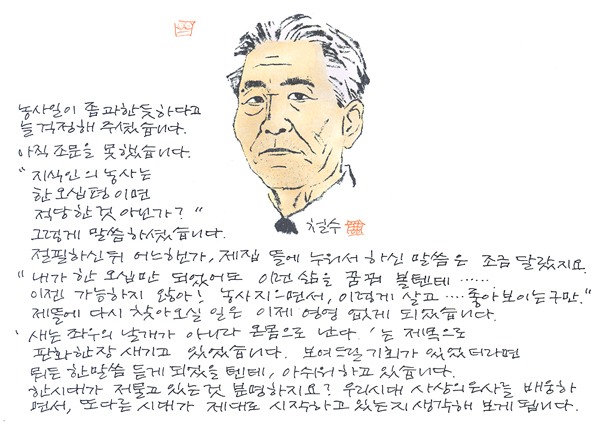 농사일이 좀 과한듯하다고
늘 걱정해 주셨습니다.
아직 조문을 못했습니다.
"지식인의 농사는
한 오십평이면
적당한 것 아닌가?"
그렇게 말씀하셨습니다.
철수
절필하신 뒤 어느핸가, 제집 뜰에 누워서 하신 말씀은 조금 달랐지요.
"내가 한 오십만 되었어도 이런 삶을 꿈꿔 볼텐데 ......
이젠 가능하지 않아! 농사지으면서, 이렇게 살고 .... 좋아보이는구만."
제뜰에 다시 찾아오실 일은 이제 영영 없게 되었습니다.
'새는 좌우의 날개가 아니라 온몸으로 난다.'는 제목으로
판화한장 새기고 있었습니다. 보여드릴 기회가 있었더라면
뭐든 한말씀 듣게 되었을 텐데, 아쉬워하고 있습니다.
한시대가 저물고 있는 것 분명하지요? 우리시대 사상의 은사를 배웅하
면서, 또다른 시대가 제대로 시작하고 있는지 생각해 보게 됩니다.